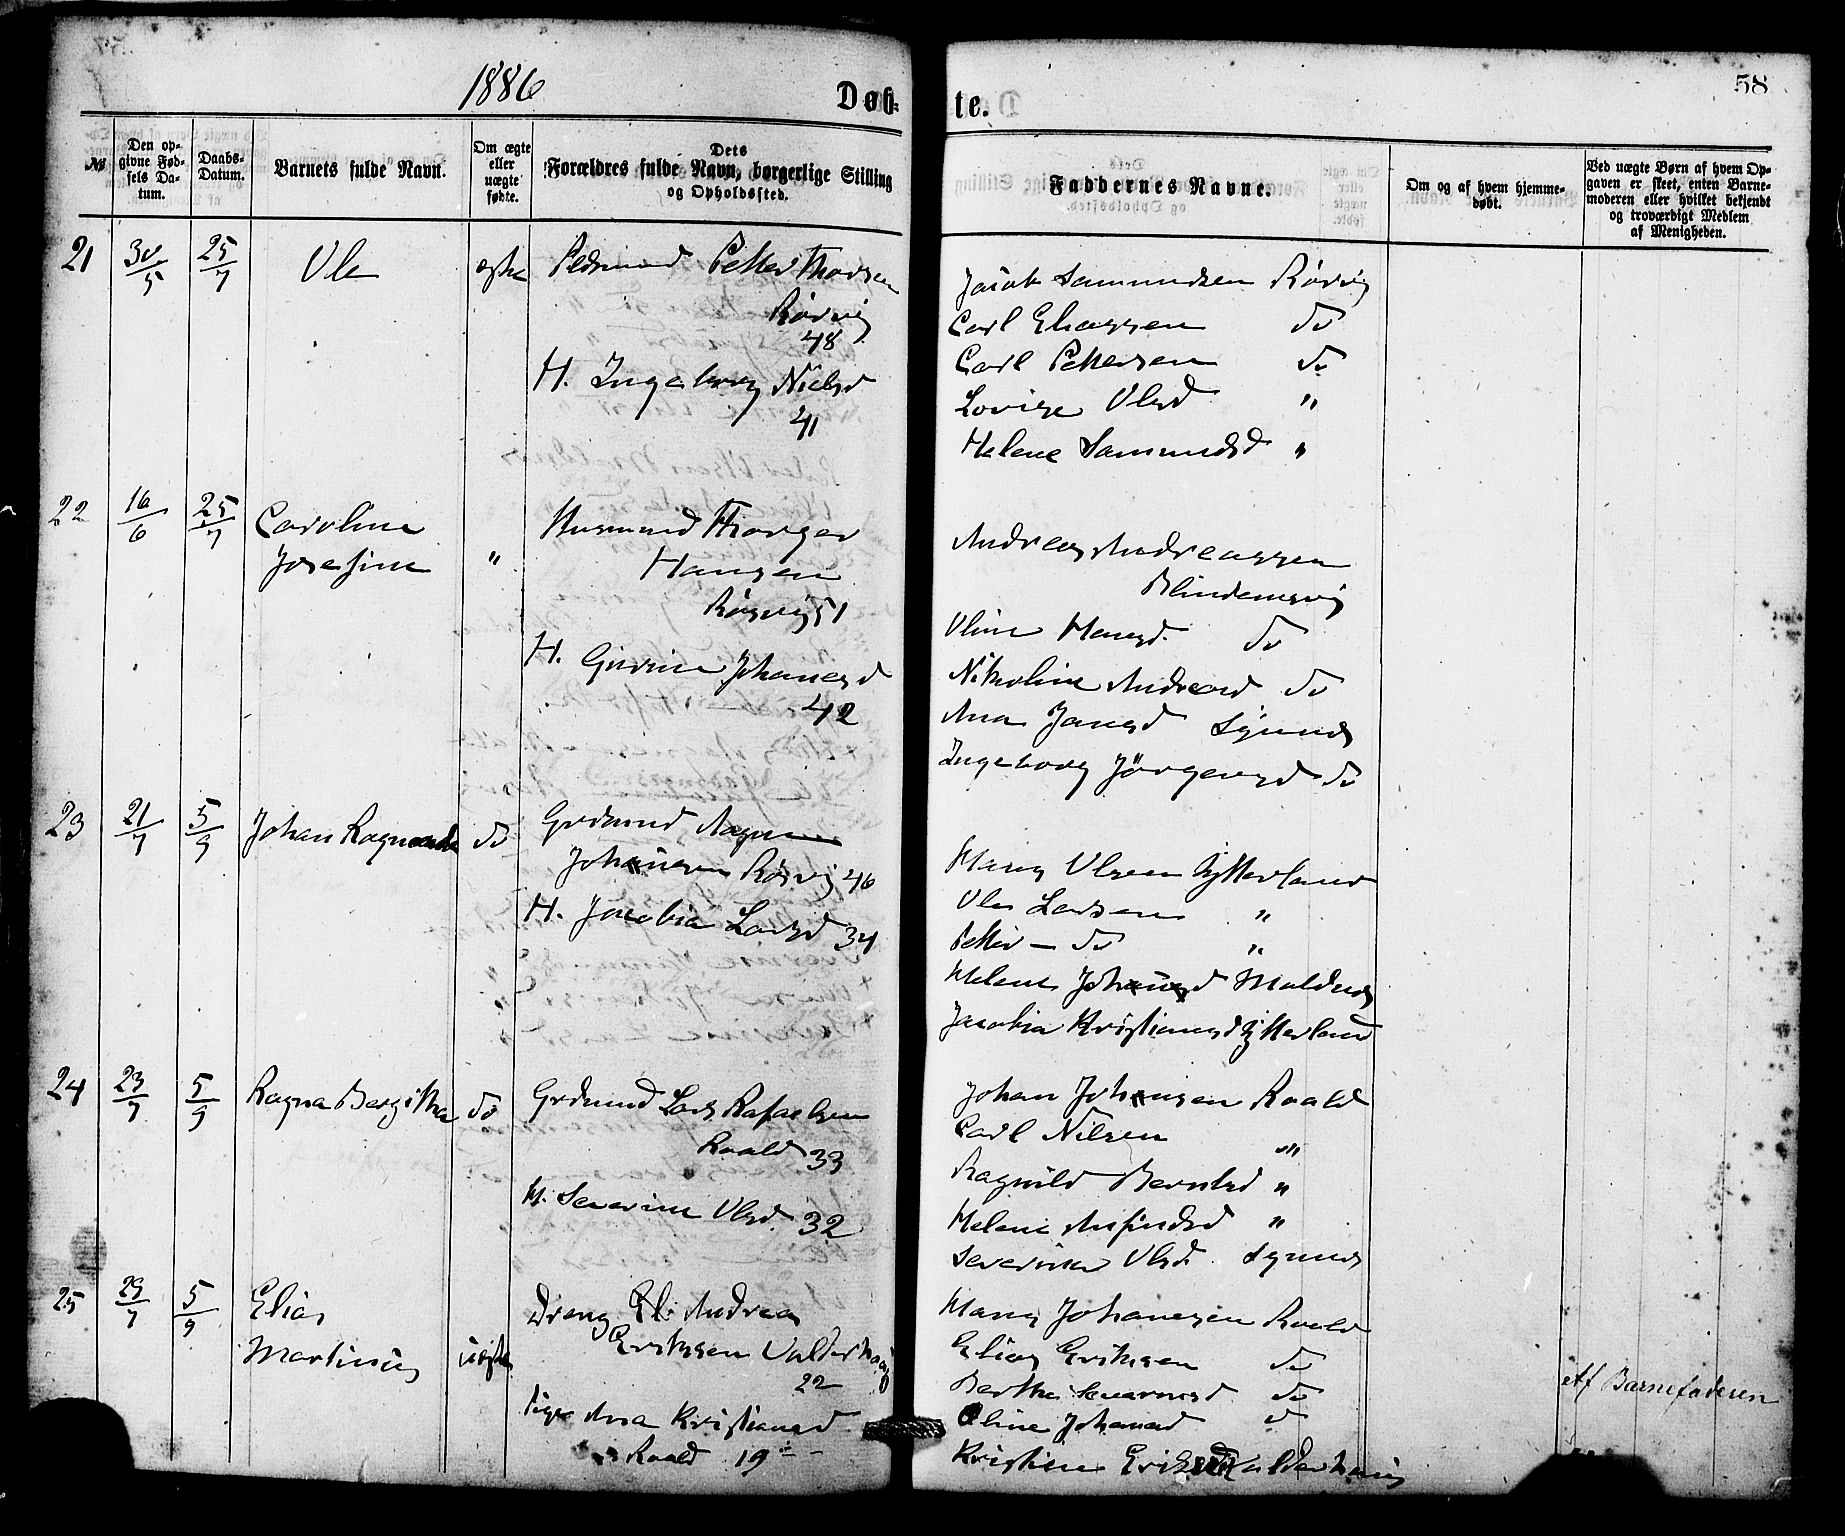 1886
Døb-
te.
58
№
Den op-
givne Fød-
sels Da-
tum.
Daabs-
Datum.
Barnets fulde Navn.
Om ægte
eller
uægte
fødte.
Dets
Forældres fulde Navn, borgerlige Stilling
og Opholdssted.
Faddernes Navne.
Om og af hvem hjemme-
døbt.
Ved uægte Børn af hvem Op-
gaven er skeet, enten Barne-
moderen eller hvilket bekjendt
og troværdigt Medlem
af Menigheden.
21 30/5 25/7 Ole ægte Petter Thorsen
Rørvig
48
H. Ingeborg Nielsd
41
Jacob Samundsen Rørvig
Carl Eliassen do
Carl Pettersen do
Lovise Olsd "
Helene Samundsd "
22 16/6 25/7 Caroline
Josefine "
Husmand
Hansen
Rørvig 51
H. Johanesd
42
Andreas Andreassen
Blindemsvig
Oline Hansd. do
Nikoline Andreasd do
Ana Jansd Synnes
Ingeborg Jørgensd do
23 21/7 5/9 Johan Ragnvald do Grdmand
Johansen Rørvig 46
H. Jacobia Larsd 34
Hans Olsen Ytterland
Ole Larsen "
Petter - do "
Helene Johansd Moldnes
Jacobia Kristiansd Ytterland
24 23/7 5/9 Ragna Bergitha do Grdmand Lars Rafaelsen
Roald 33
H. Severine Olsd. 32
Johan Johansen Roald
Carl Nilsen "
Ragnild Berntsd "
Helene Anfindsd "
Severine Olsd. Synnes
25 29/7 5/9 Elias
Martinius uægte
Dreng El. Andreas
Eriksen Valderhaug
22
Pige Ana Kristiansd
Roald 19
Hans Johanesen Roald
Elias Eriksen do
Berthe do
Oline Johansd do
Kristine Valderhaug
Af Barnefaderen